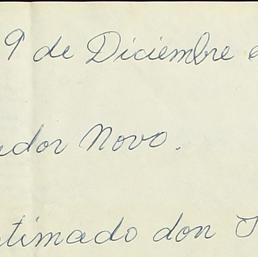 9 de Diciembre
ador Novo.
timado don